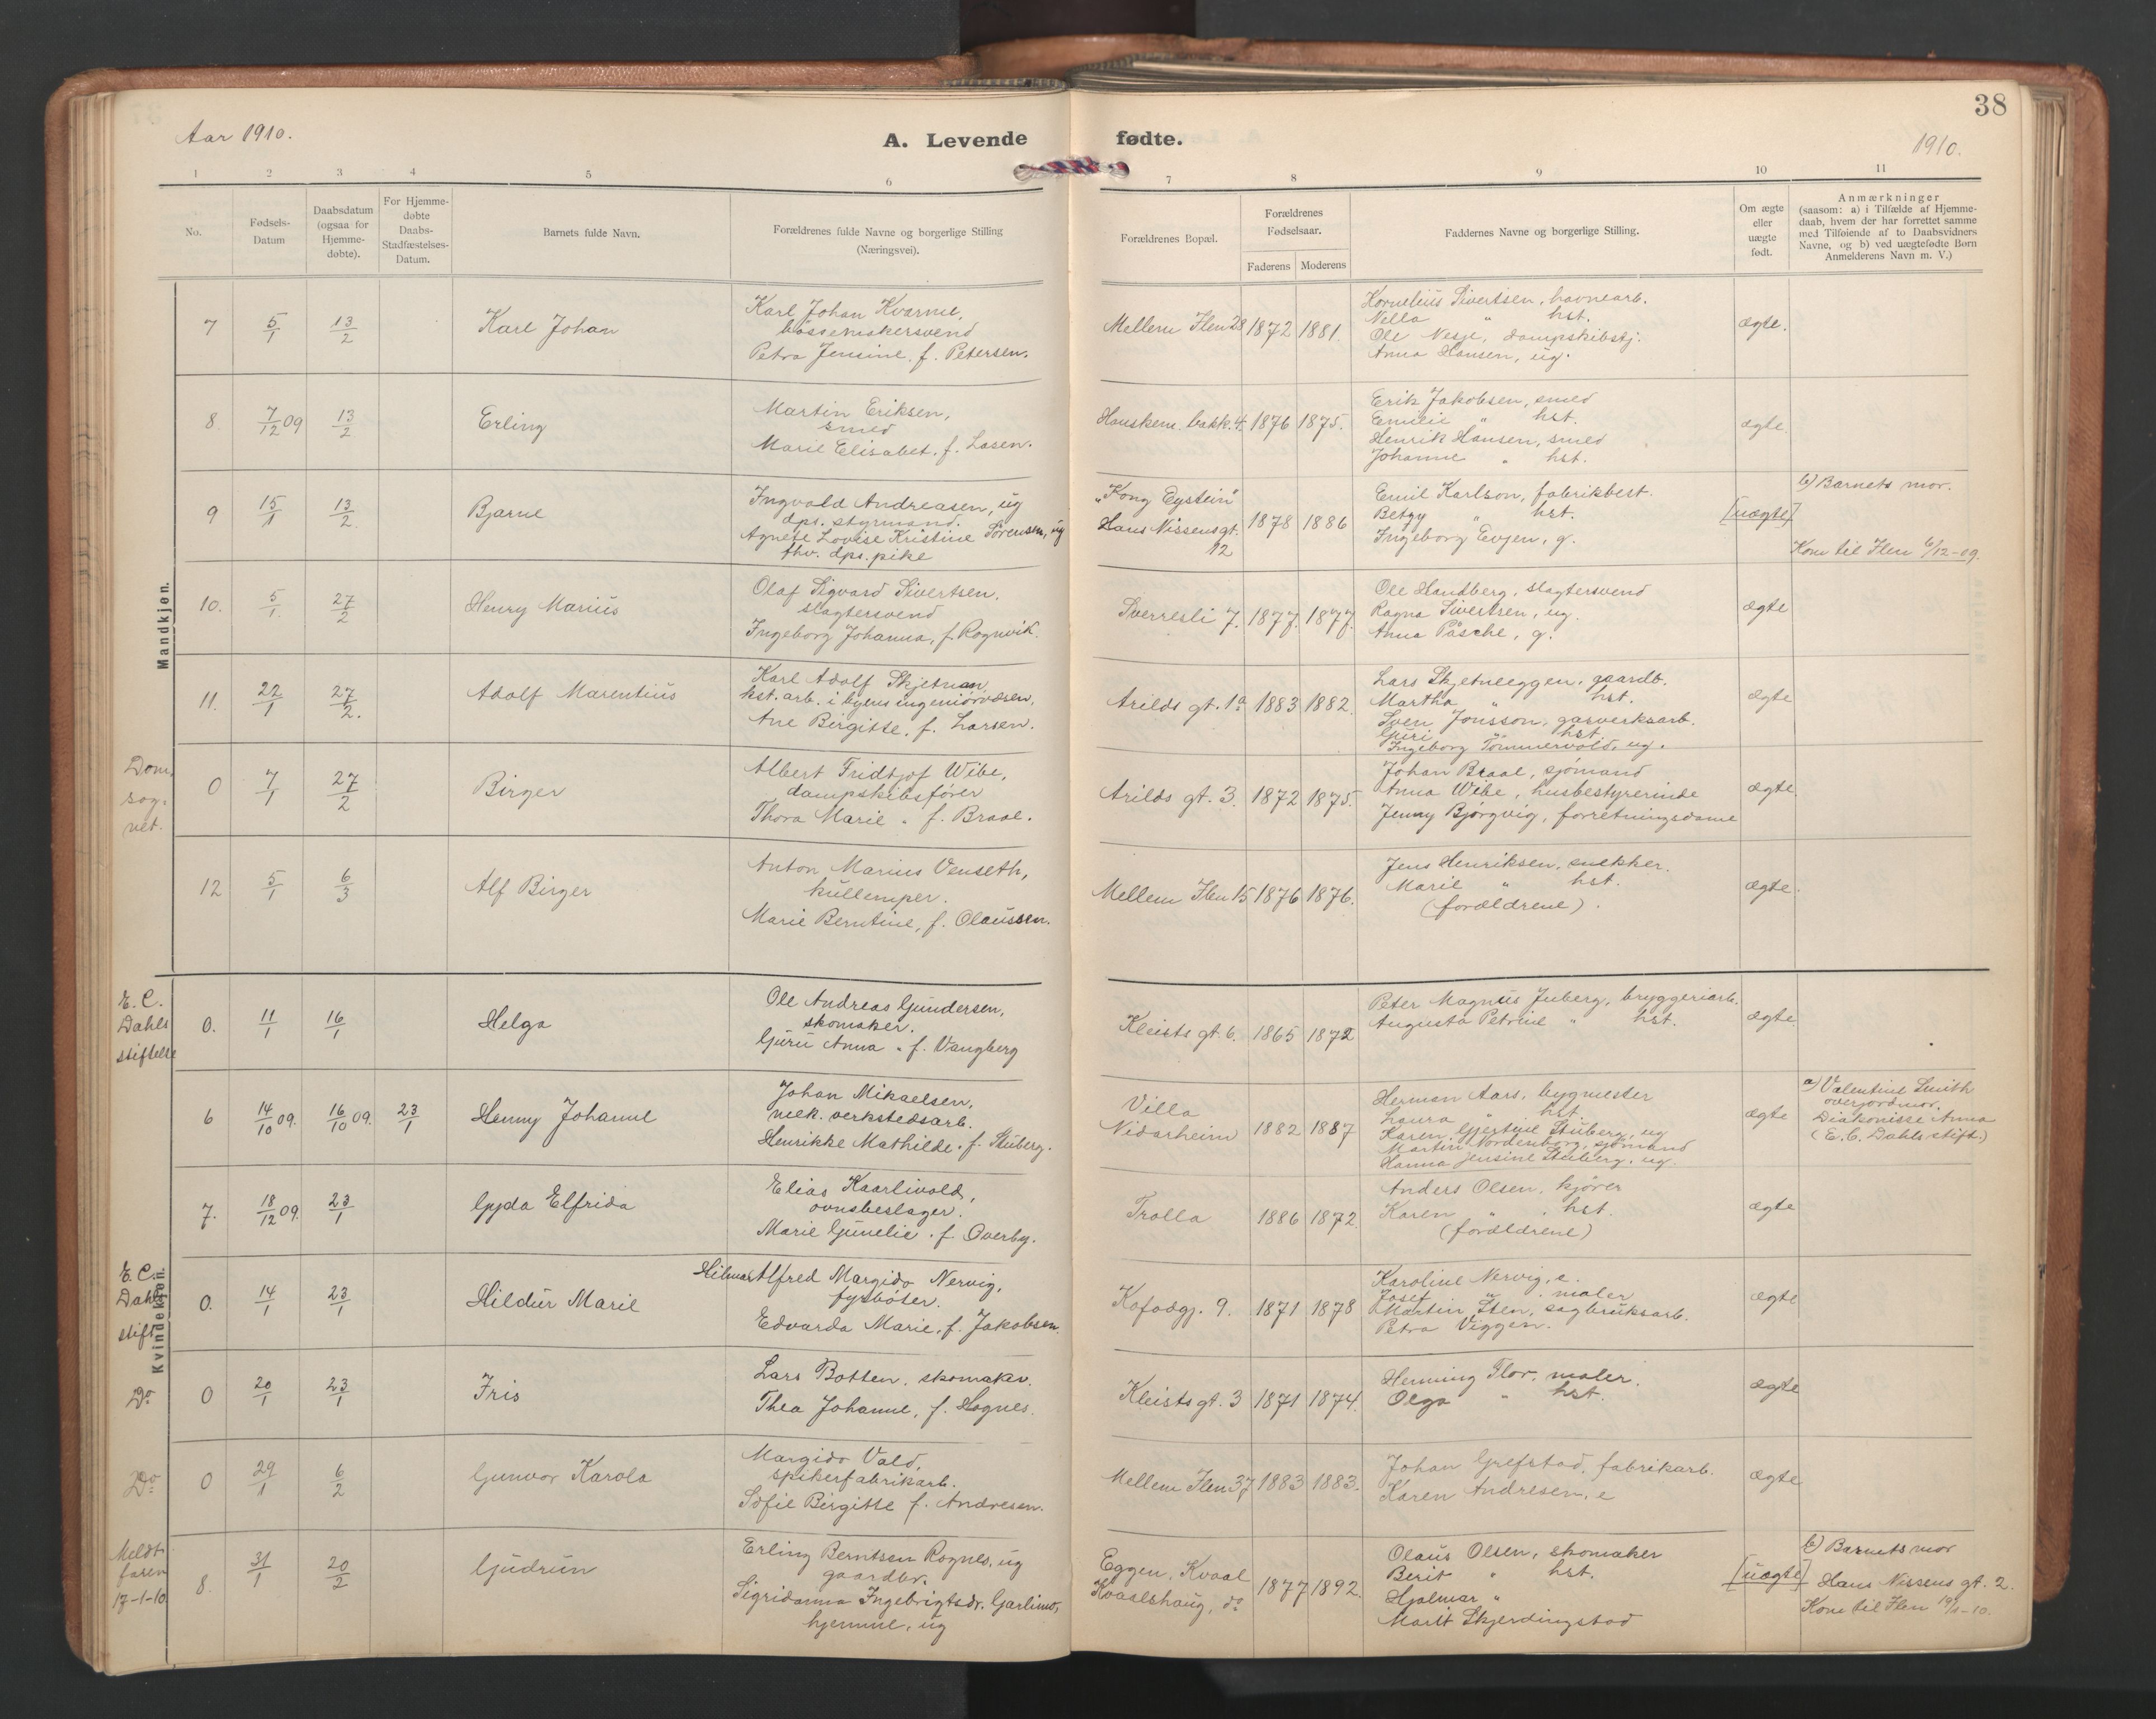 38
Aar 1910.
A. Levende fødte.
1910.
1 2 3 4 5 6 7 8 9 10 11
No.
Fødsels-
Datum
Daabsdatum
(ogsaa for
Hjemme-
døbte).
For Hjemme-
døbte
Daabs-
Stadfæstelses-
Datum.
Barnets fulde Navn.
Forældrenes fulde Navne og borgerlige Stilling
(Næringsvei).
Forældrenes Bopæl.
Forældrenes
Fødselsaar.
Faderens Moderens
Faddernes Navne og borgerlige Stilling.
Om ægte
eller
uægte
født.
Anmærkninger
(saasom: a) i Tilfælde af Hjemme-
daab, hvem der har forrettet samme
med Tilføiende af to Daabsvidners
Navne, og b) ved uægtefødte Børn
Anmelderens Navn m. V.)
Mandkjøn.
7 5/1 13/2 Karl Johan
Karl Johan Kvarme,
bøssemakersvend
Petra Jensine, f. Petersen.
Mellem Ilen 28 1872 1881.
Kornelius Sivertsen, havnearb.
Nella " hst.
Ole Nesje, dampskibstj.
Anna Hansen, ug.
ægte.
8. 7/12 09 13/2 Erling
Martin Eriksen,
smed
Marie Elisabet, f. Lasen.
Hauskem. bakk. 4. 1876 1875.
Erik Jakobsen, smed
Emilie " hst.
Henrik Hansen, smed
Johanne " hst.
ægte.
9 15/1 13/2. Bjarne
Ingvald Andreasen, ug
dps. styrmand.
Agnete Lovise Kristine Sørensen, ug
fhv. dps. pike
"Kong Eystein"
Hans Nissens gt.
12
1878 1886
Emil Karlson, fabrikbest.
Betzy " hst.
Ingeborg Evjen, g.
[uægte]
b) Barnets mor.
Kom til Ilen 6/12-09.
10. 5/1. 27/2 Henry Marius
Olaf Sigvard Sivertsen,
slagtersvend
Ingeborg Johanna, f. Rognvik.
Sverresli 7. 1877. 1877.
Ole Handberg, slagtersvend
Ragna Sivertsen, ug.
Anna Påsche, g.
ægte
11. 22/1 27/2. Adolf Marentius
Karl Adolf Skjetnan,
hst. arb. i byens ingeniørvæsen,
Ane Birgitte, f. Larsen.
Arilds gt. 1a 1883 1882.
Lars Skjetneeggen, gaardb.
Martha " hst.
Sven Jonsson, garverksarb.
Guri " hst.
Ingeborg Tømmervold, ug.
ægte
Dom.
sog.
net.
0 7/1 27/2 Birger
Albert Fridtjof Wibe,
dampskibsfører
Thora Marie, f. Braal.
Arilds gt. 3. 1872 1875.
Johan Braal, sjømand
Anna Wibe, husbestyrerinde
Jenny Bjørgvig, forretningsdame
ægte.
12 5/1 6/3 Alf Birger
Anton Marius Venseth,
kullemper.
Marie Berntine, f. Olaussen.
Mellem Ilen 15 1876 1876.
Jens Henriksen, snekker.
Marie " hst.
(forældrene).
ægte.
Kvindekjøn.
E. C.
Dahls
stiftelse
0. 11/1 16/1 Helga
Ole Andreas Gundersen,
skomaker.
Guru Anna, f. Vangberg
Kleists gt. 6. 1865 1872
Peter Magnus Juberg, bryggeriarb.
Augusta Petrine " hst.
ægte.
6 14/10 09. 16/10 09. 23/1 Henny Johanne
Johan Mikaelsen,
mek. verkstedsarb.
Henrikke Mathilde, f. Stuberg.
Villa
Nidarheim
1882 1887
Herman Aars, bygmester
Laura " hst.
Karen Gjertine Stuberg, ug
Martin Nordenborg, sjømand
Hanna Jensine Stuberg, ug.
ægte
a) Valentine Smith
overjordmor.
Diakonisse Anna
(E. C. Dahls stift.)
7. 18/12 09. 23/1 Gyda Elfrida
Elias Kaarlivold,
ovnsbeslager.
Marie Gunelie, f. Overby.
Trolla 1886 1872.
Anders Olsen, kjører
Karen " hst.
(forældrene)
ægte
E. C.
Dahls
stift
0. 14/1 23/1 Hildur Marie
Hilmar Alfred Margido Nervig,
fyrbøter.
Edvarda Marie, f. Jakobsen.
Kofodgj. 9. 1871 1878
Karoline Nervig, e.
Josef " maler
Martin Sten, sagbruksarb.
Petra Viggen.
ægte
Do
0 20/1 23/1 Iris
Lars Botten, skomaker.
Thea Johanne, f. Hognes.
Kleists gt. 3 1871 1874.
Henning Flor, maler.
Olga " hst.
ægte
Do
0 29/1 6/2 Gunvor Karola
Margido Vald,
spikerfabrikarb.
Sofie Birgitte f. Andresen.
Mellem Ilen 37 1883 1883.
Johan Grefstad, fabrikarb.
Karen Andresen, e
ægte
Meldt
faren
17-1-10
8. 31/1 20/2 Gudrun
Erling Berntsen Rognes, ug
gaardbr.
Sigridanna Ingebrigtsdr. Garlimo,
hjemme, ug
Eggen, Kvaal
Kvaalshaug, do
1877 1892.
Olaus Olsen, skomaker
Berit " hst.
Hjalmar "
Marit Skjerdingstad
[uægte]
b) Barnets mor
Hans Nissens gt. 2.
Kom til Ilen 19/1-10.